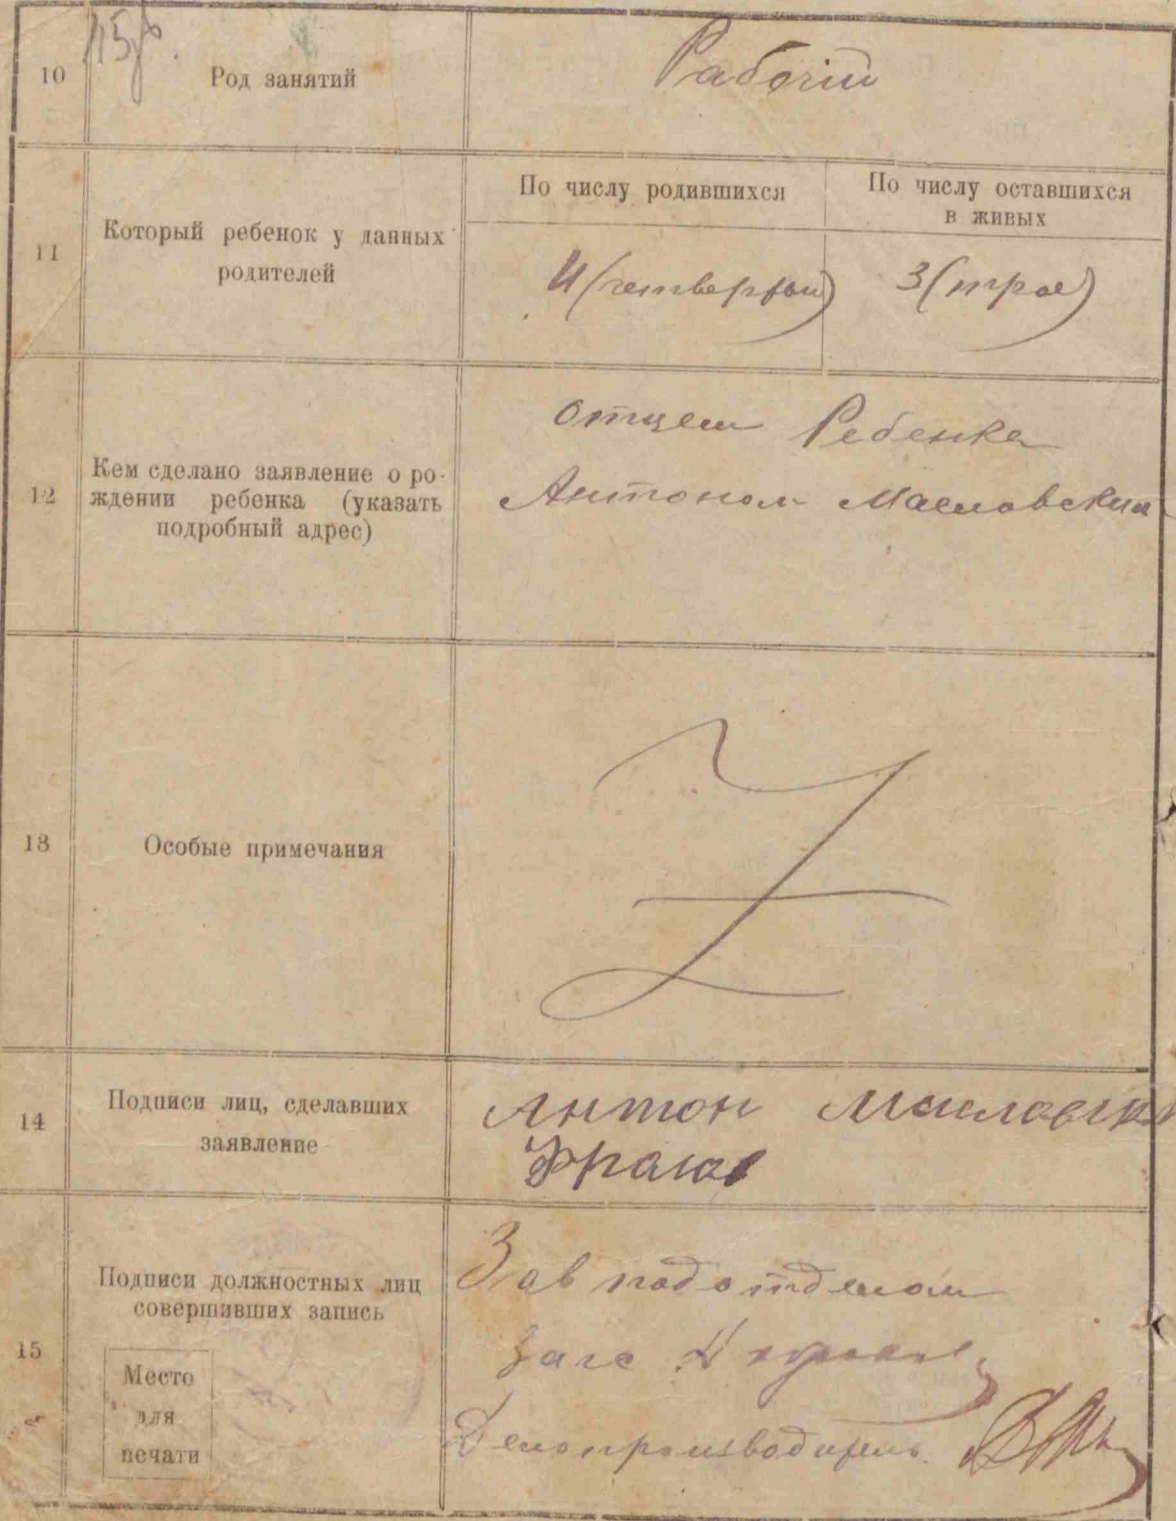 10
Род занятий
Рабочій
11
Который ребенок у данных
родителей
По числу родившихся
По числу оставшихся
в живых
4 (четвертый)
3 (трое)
12
Кем сделано заявление о ро-
ждении ребенка (указать
подробный адрес)
Отцем Ребенка
Антоном Масловским
13
Особые примечания
Z
14
Подписи лиц, сделавших
заявление
Антон
15
Подписи должностных лиц
совершивших запись
Место
для
печати
Зав подотделом
Загс
Делопроизводитель